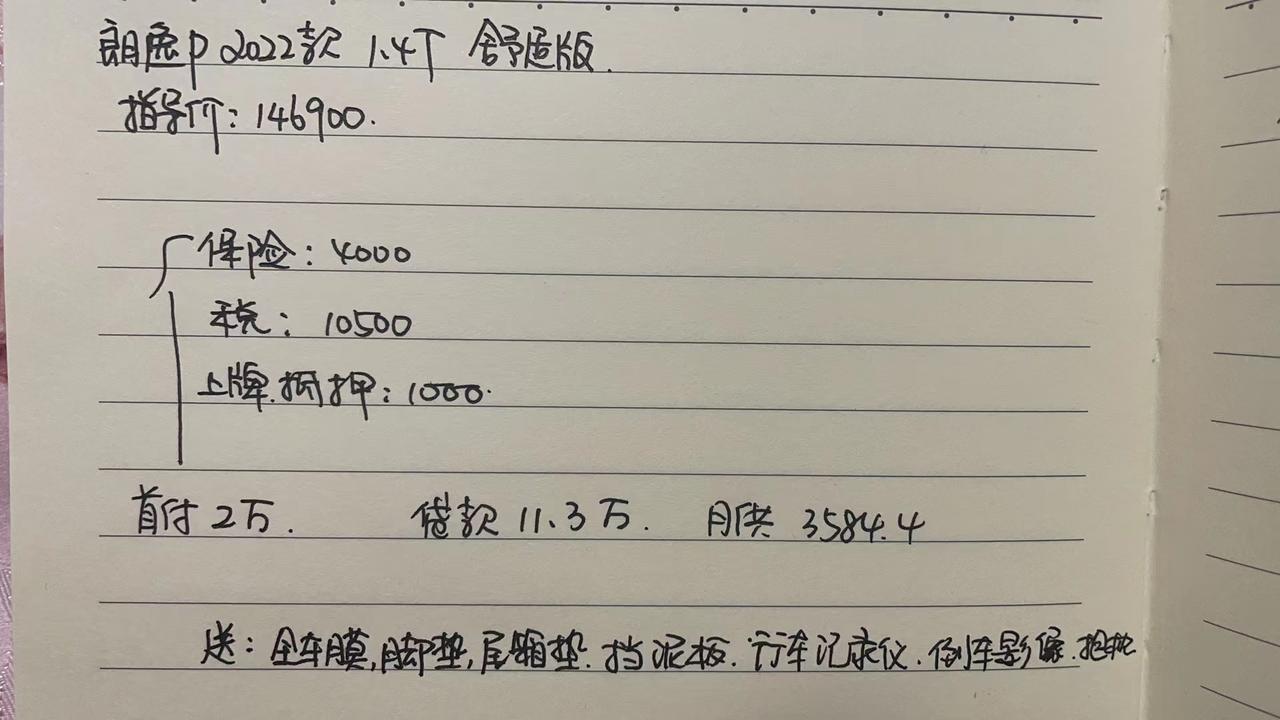 朗逸p 2022款 1.4T 舒适版.
指导价: 146900.
保险: 4000
税: 10500
上牌.抵押: 1000.
首付 2万. 贷款 11.3万. 月供 3584.4
送: 全车膜,脚垫,尾箱垫.挡泥板.行车记录仪.倒车影像.抱枕